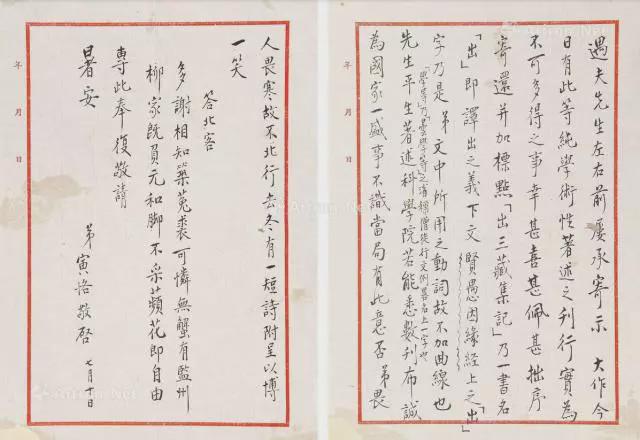 遇夫先生左右前屢承寄示 大作今
日有此等純學術性著述之刊行實為
不可多得之事幸甚喜甚佩甚拙序
寄還并加標點「出三藏集記」乃一書名
「出」即譯出之義下文賢愚因緣經上之「出」
字乃是弟文中所用之動詞故不加曲線也
「學等」乃曇學等之省稱僧徒行文例畧名上一字也
先生平生著述科學院若能悉數刊布誠
為國家一盛事不識當局有此意否弟畏
年 月 日
人畏寒故不北行去冬有一短詩附呈以博
一笑
答北客
多謝相知築菟裘可憐無蟹有監州
柳家既負元和脚不采蘋花即自由
專此奉復敬請
暑安
弟寅恪敬啓 七月 日
年 月 日